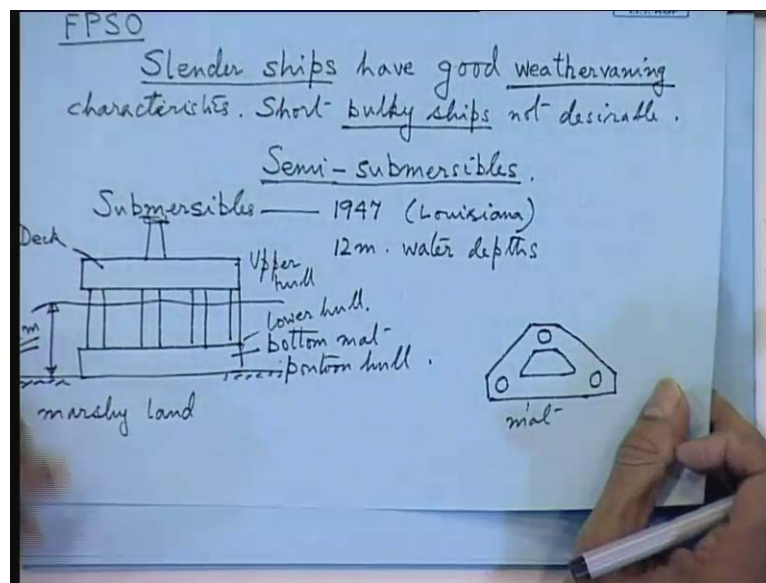 FPSO
Slender ships have good weathervaning
characteristics. Short bulky ships not desirable.
Semi-submersibles.
Submersibles — 1947 (Louisiana)
12m. water depths
Deck
Upper
hull
lower hull.
bottom mat
pontoon hull.
m
marshy land
mat